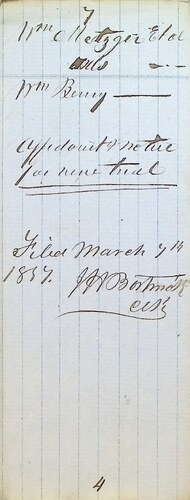 7
Wm Metzger Et al
Wm Berry
affidavit & notice
for new trial
Filed March 7th
1857.
Clk
4